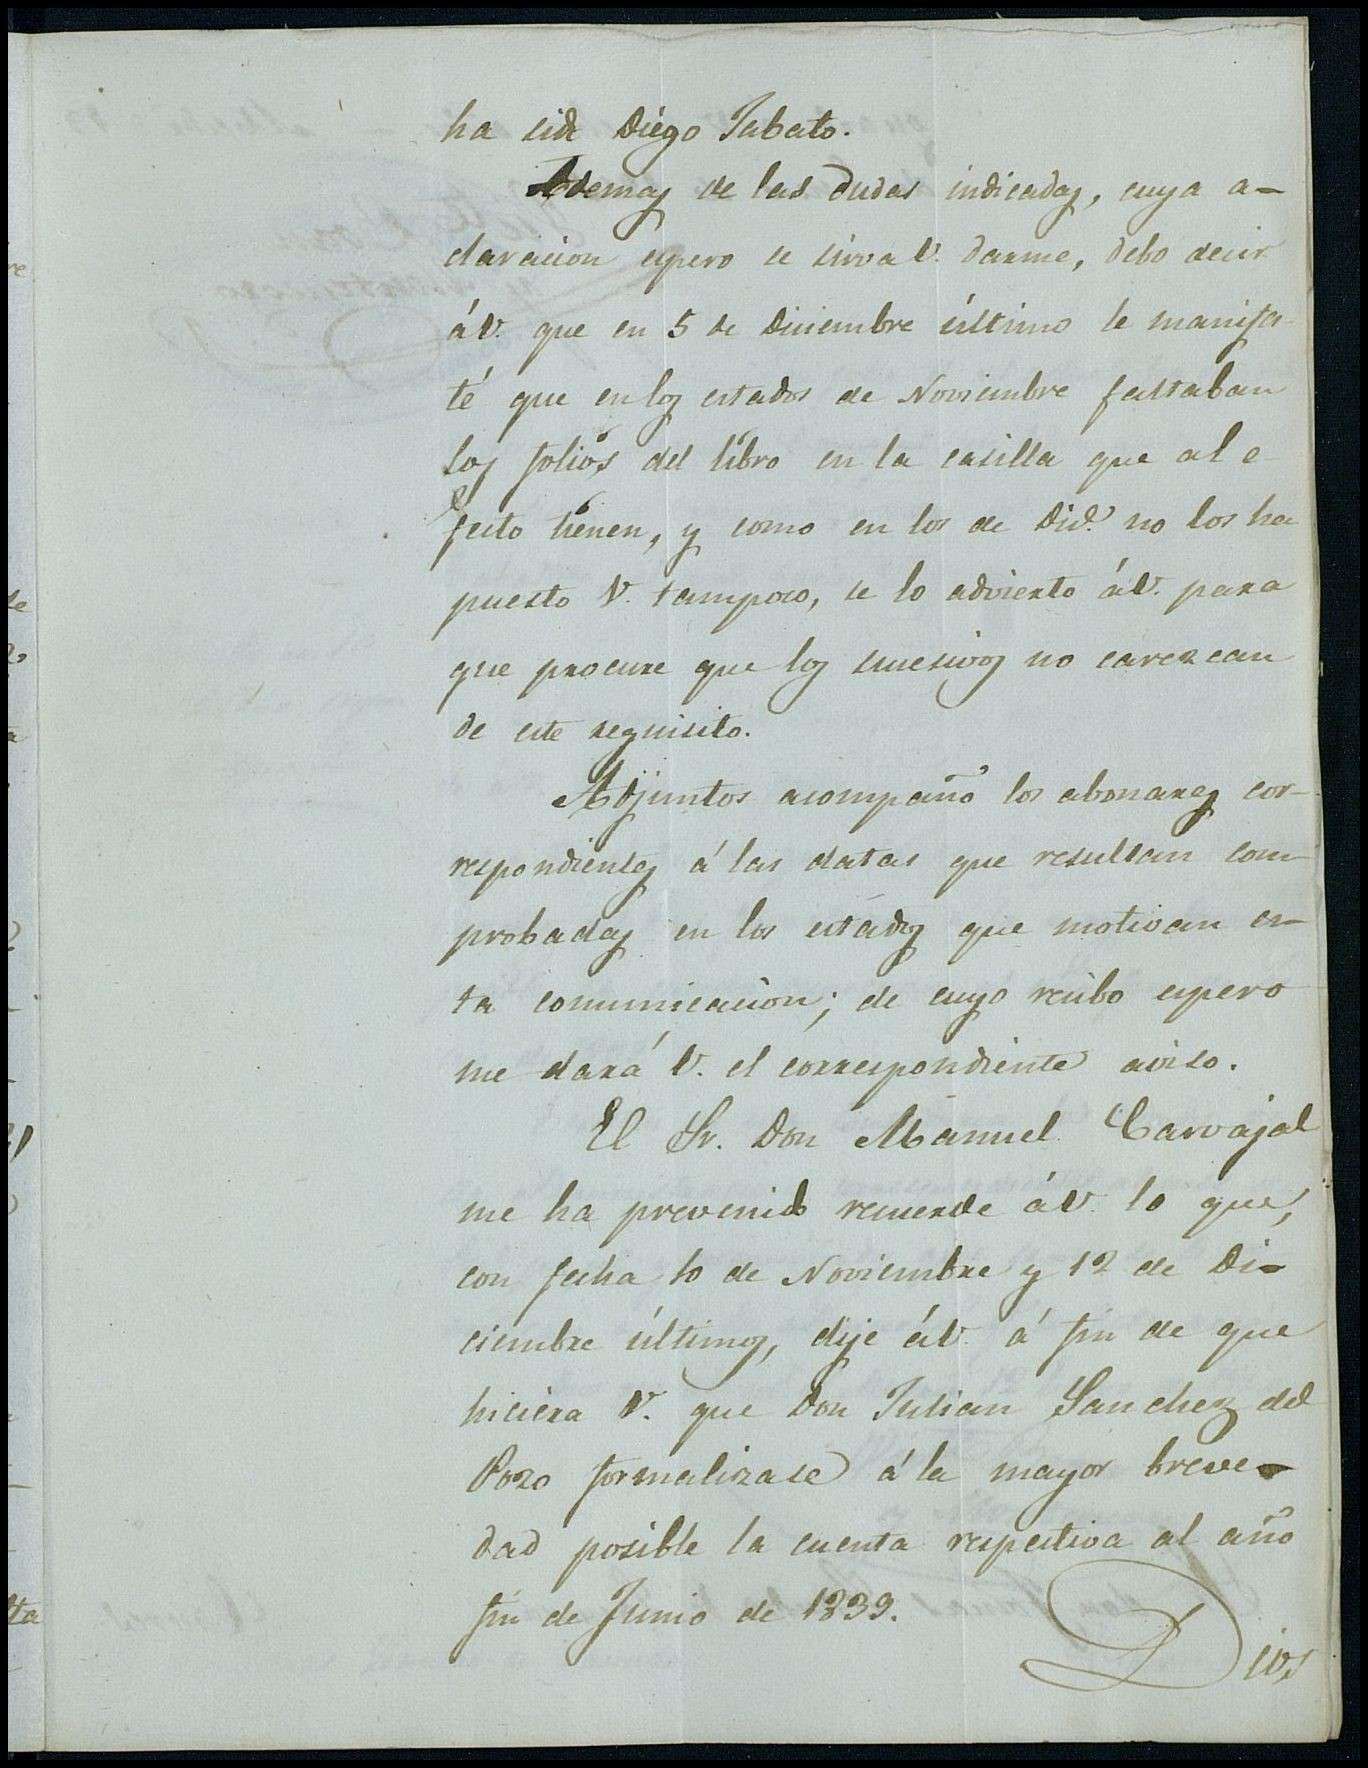 ha sido Diego Tabato.
Ademas de las dudas indicadas, cuya a-
claracion espero se sirva V. darme, debo decir
á V. que en 5 de Diciembre último le manifes-
té que en los estados de Noviembre faltaban
los folios del libro en la casilla que al e
fecto tienen, y como en los de Dic.e no los ha
puesto V. tampoco, se lo advierto á V. para
que procure que los sucesivos no carezcan
de este requisito.
Adjuntos acompaño los abonares cor-
respondientes á las datas que resultan com-
probadas en los estados que motivan es-
ta comunicacion; de cuyo recibo espero
me dará V. el correspondiente aviso.
El Sr. Don Manuel Carvajal
me ha prevenido recuerde á V. lo que,
con fecha 10 de Noviembre y 12 de Di-
ciembre últimos, dije á V. á fin de que
hiciera V. que Don Julian Sanchez del
Pozo formalizase á la mayor breve-
dad posible la cuenta respectiva al año
fin de Junio de 1839.
Dios